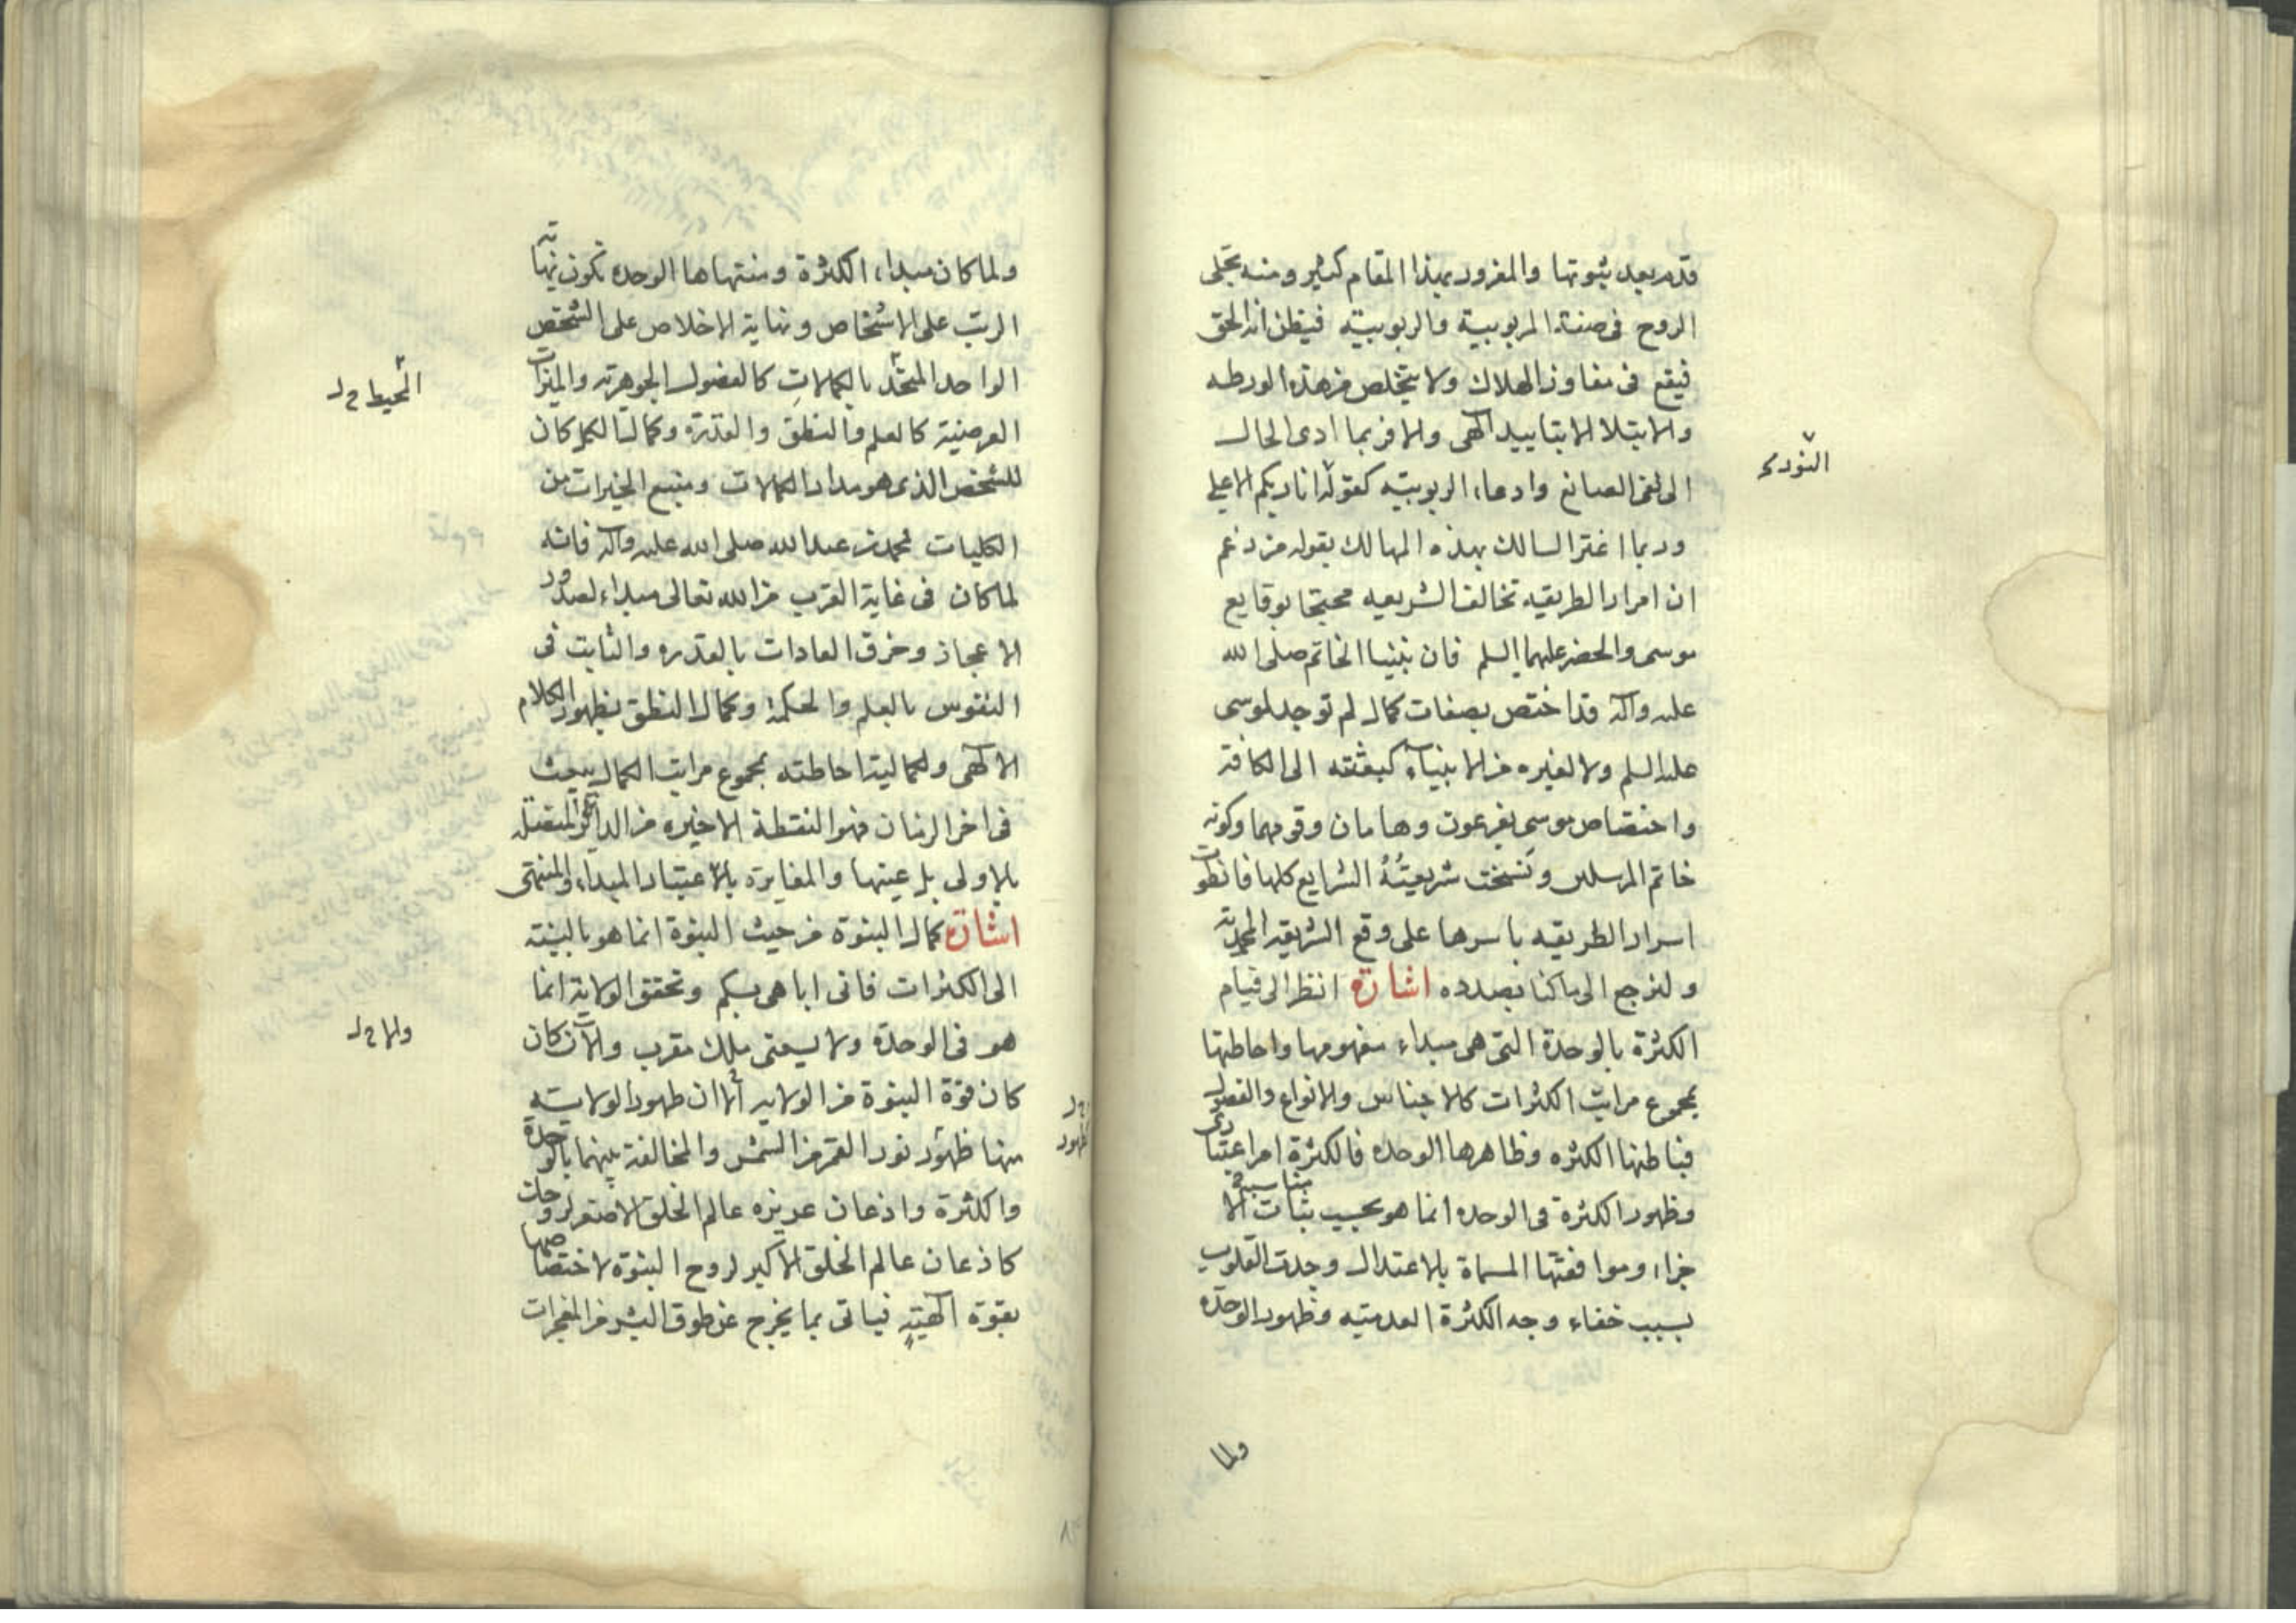 قدم بعد ثبوتها والمغرور بهذا المقام كثير ومنه تجلى
الروح فى صفة المربوبية والربوبية فيظن انه الحق
فيقع فى مفاوز الهلاك ولا يتخلص من هذه الورطه
والابتلا الا بتاييد الهى والا فربما ادى الحال
النورى
الى نفى الصانع وادعاء الربوبية كقوله انا ربكم الاعلى
وربما اغتر السالك بهذه المهالك بقوله من زعم
ان اسرار الطريقه تخالف الشريعه محتجا بوقايع
موسى والخضر عليهما السلم فان نبينا الخاتم صلى الله
عليه وآله قد اختص بصفات كمال لم توجد لموسى
عليه السلم ولا لغيره من الانبياء كبعثته الى الكافة
واختصاص موسى بفرعون وهامان وقومهما وكونه
خاتم المرسلين ونسخت شريعته الشرايع كلها فانطوت
اسرار الطريقه باسرها على وقع الشريعه المحمدية
ولنرجع الى ما كنا بصدده اشارة انظر الى قيام
الكثرة بالوحدة التى هى مبداء مفهومها واحاطتها
بمجموع مراتب الكثرات كالاجناس والانواع والفصول
فباطنها الكثره وظاهرها الوحده فالكثرة امر اعتبارى
وظهور الكثرة فى الوحده انما هو بحسب مناسبة الا
جزاء وموافقتها المسماة بالاعتدال وجدت القلوب
بسبب خفاء وجه الكثرة العدميه وظهور الوحده
ولما
ولما كان مبداء الكثرة ومنتهاها الوحده تكون نهاية
الرتب على الاشخاص ونهاية الاخلاص على الشخص
الواحد المتحد بالكمالات كالفصول الجوهرية والميزات
المحيط خ ل
العرضية كالعلم والنطق والقدرة وكمال الكل كان
للشخص الذى هو مدار الكمالات ومنبع الخيرات من
الكليات محمد بن عبد الله صلى الله عليه وآله فانه
لما كان فى غاية القرب من الله تعالى مبداء لصدور
الاعجاز وخرق العادات بالقدره والثابت فى
النفوس بالعلم والحكمة وكمال النطق بظهور الكلام
الالهى ولكمالية احاطته بمجموع مراتب الكمال يبعث
فى اخر الزمان فهو النقطة الاخيره من الدائرة المتصله
بالاولى بل عينها والمغايرة بالاعتبار المبداء والمنتهى
اشارة كمال النبوة من حيث النبوة انما هو بالنسبة
الى الكثرات فانى اباهى بكم وتحقق الولاية انما
هو فى الوحدة ولا يسعنى ملك مقرب والا ان كان
ولما خ ل
كان قوة النبوة من الولايه الا ان ظهور الولايه
منها ظهور نور القمر من الشمس والمخالفة بينهما بالوحدة
ظهور
والكثرة واذعان غريزه عالم الخلق الاصغر لروحات
كاذعان عالم الخلق الاكبر لروح النبوة لاختصاصها
بقوة الهية فياتى بما يخرج عن طوق البشر من المعجزات